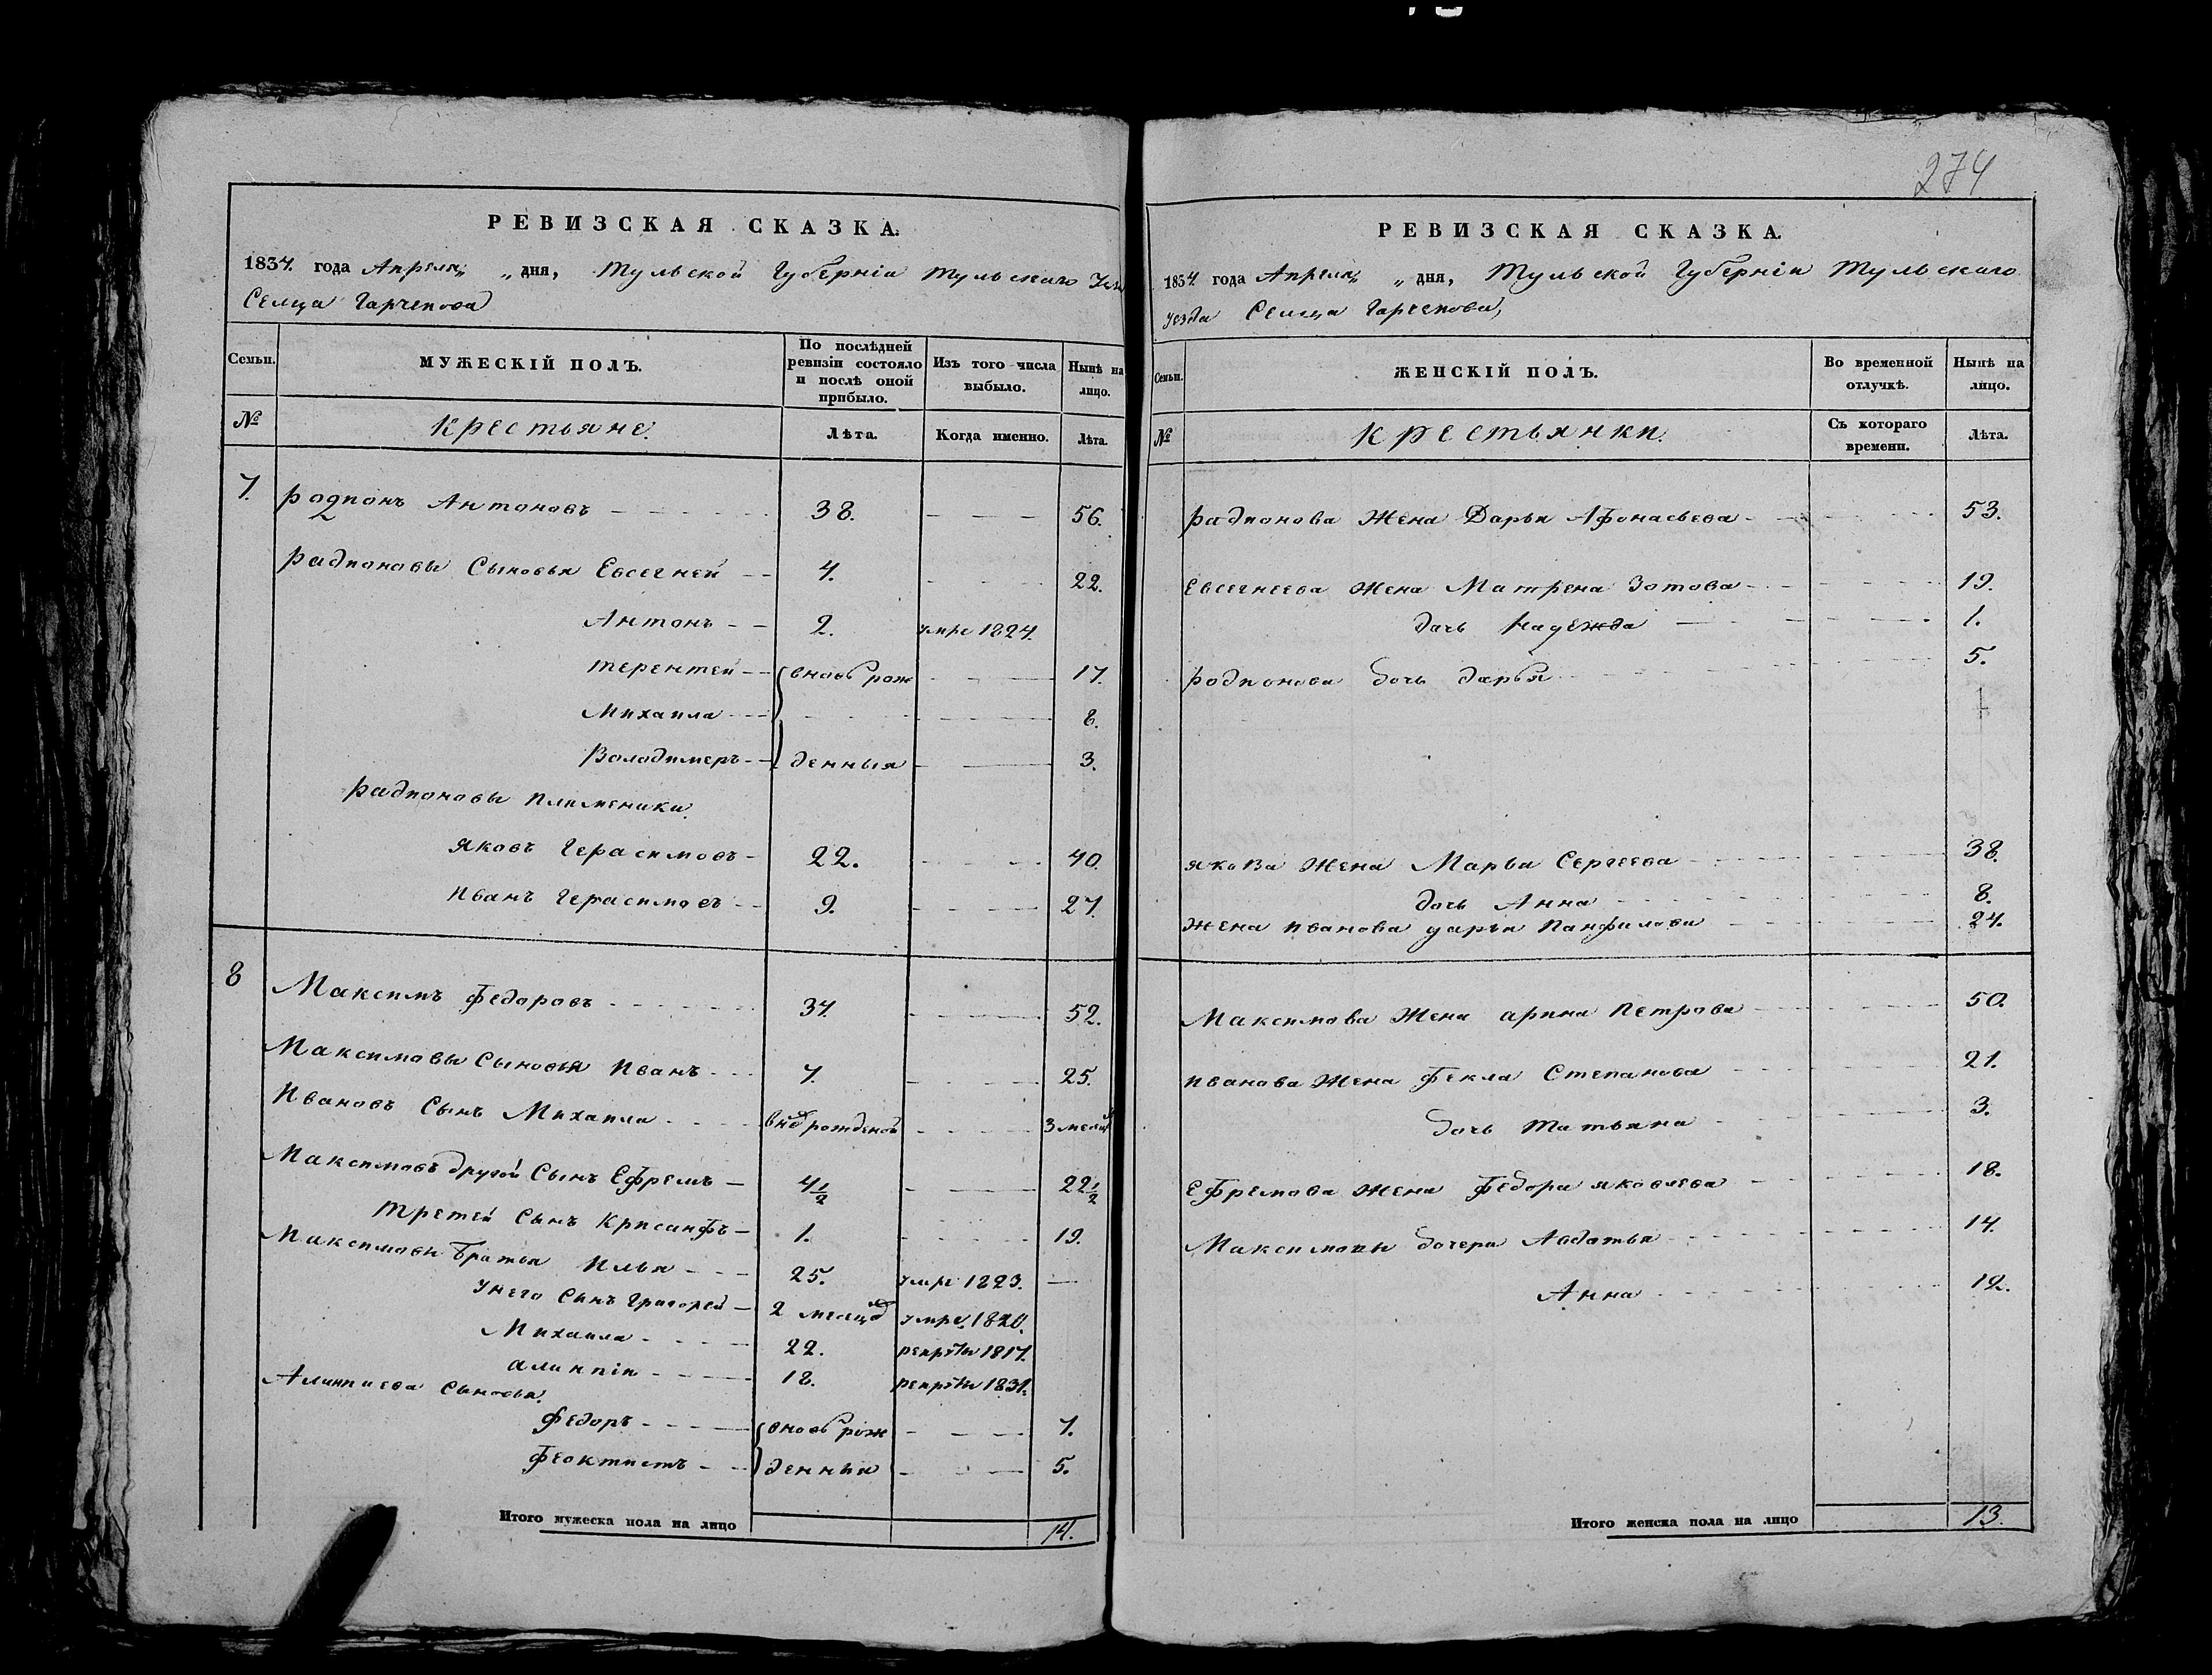 274
РЕВИЗСКАЯ СКАЗКА.
1834. года Апреля „ дня, Тульской Губерніи Тульскаго
Селца Гарчепова
Семьи. МУЖЕСКІЙ ПОЛЪ. По послѣдней ревизіи состояло и послѣ оной прибыло. Изъ того числа выбыло. Нынѣ на лицо.
№ Крестьяне. Лѣта. Когда именно. Лѣта.
7. Родионъ Антоновъ 38. 56.
Радионовы Сыновья Евсегней 4. 22.
Антонъ 2. умре 1824.
Терентей вновь рож 17.
Михаила 8.
Володимеръ денныя 3.
Радионовы племеники
Яковъ Герасимовъ 22. 40.
Иванъ Герасимовъ 9. 27.
8 Максимъ Федоровъ 34. 52.
Максимовы Сыновья Иванъ 7. 25.
Ивановъ Сынъ Михаила внов рожденой 3 месяц
Максимовъ другой Сынъ Ефремъ 4 1/2 22 1/2
Третей Сынъ Крисанфъ 1. 19.
Максимовы Братья Илья 25. умре 1823.
У него Сынъ Григорей 2 месяцов умре 1820.
Михаила 22. рекрты 1817.
Алимпій 18. рекрты 1831.
Алимпиева Сыновья
Федоръ вновь рож 7.
Феоктистъ денныя 5.
Итого мужеска пола на лицо 14.
РЕВИЗСКАЯ СКАЗКА.
1834 года Апреля „ дня, Тульской Губерніи Тульскаго
уезда Селца Гарчепова
Семьи. ЖЕНСКІЙ ПОЛЪ. Во временной отлучкѣ. Нынѣ на лицо.
№ Крестьянки. Съ котораго времени. Лѣта.
Радионова Жена Дарья Афонасьева 53.
Евсегнеева Жена Матрена Зотова 19.
дочь Надежда 1.
Родионова дочь Дарья 5.
Якова Жена Марья Сергеева 38.
дочь Анна 8.
Жена Иванова Дарья Панфилова 24.
Максимова Жена Арина Петрова 50.
Иванова Жена Фекла Степанова 21.
дочь Татьяна 3.
Ефремова Жена Федора Яковлева 18.
Максимовы дочери Авдотья 14.
Анна 12.
Итого женска пола на лицо 13.